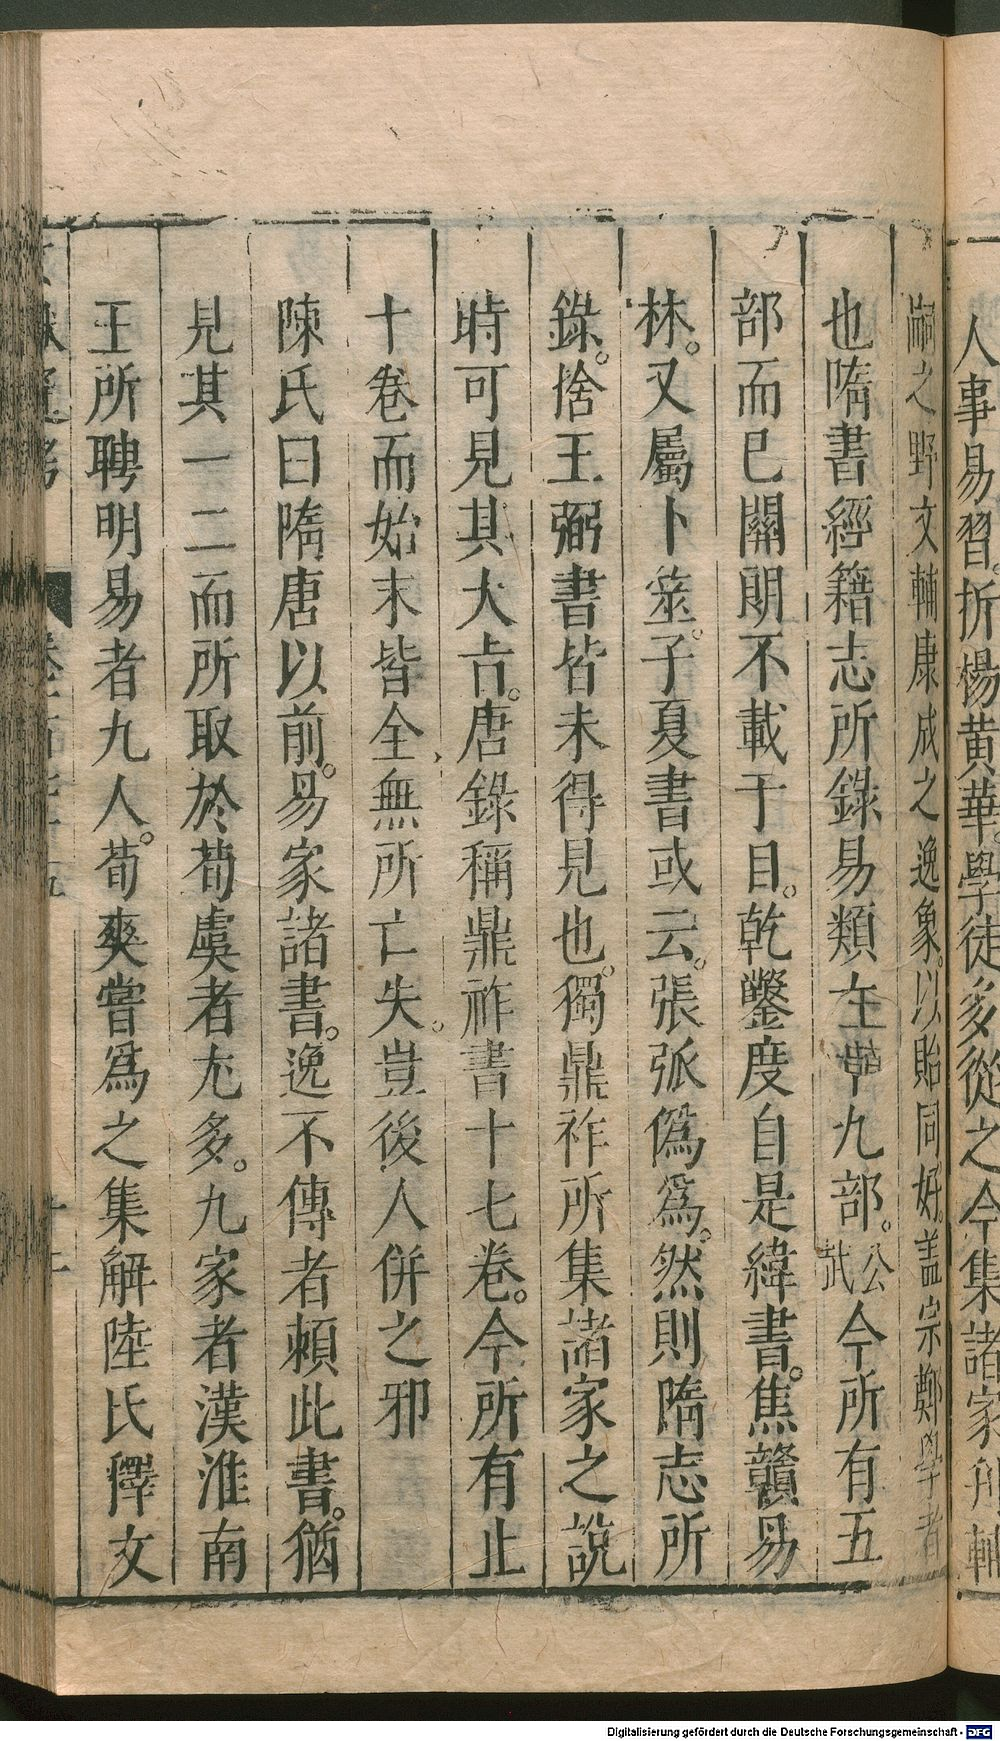 人事易習。折楊黃華。學徒多從之。今集諸家刋輔
嗣之野文輔康成之逸象。以貽同好。盖宗鄭學者
也隋書經籍志所錄易類九部。公武今所有五
部而已關朗不載于目。乾鑿度自是緯書。焦贛易
林。又屬卜筮。子夏書或云。張弧僞爲。然則隋志所
錄。捨王弼書皆未得見也。獨鼎祚所集諸家之說
時可見其大㫖。唐錄稱鼎祚書十七卷。今所有止
十卷而始末皆全無所亡失。豈後人併之邪
陳氏曰隋唐以前。易家諸書。逸不傳者賴此書。猶
見其一二而所取於荀虞者尤多。九家者漢淮南
王所聘明易者九人。荀爽嘗爲之集解陸氏釋文
Digitalisierung gefördert durch die Deutsche Forschungsgemeinschaft - DFG